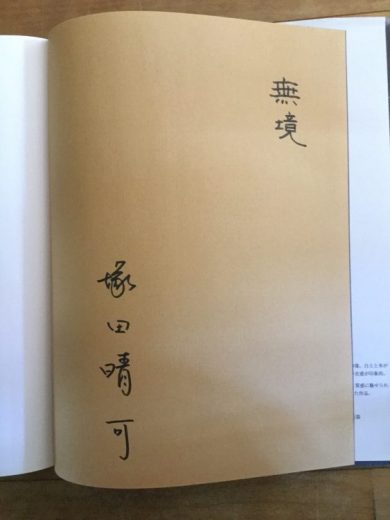 無境
塚田晴可